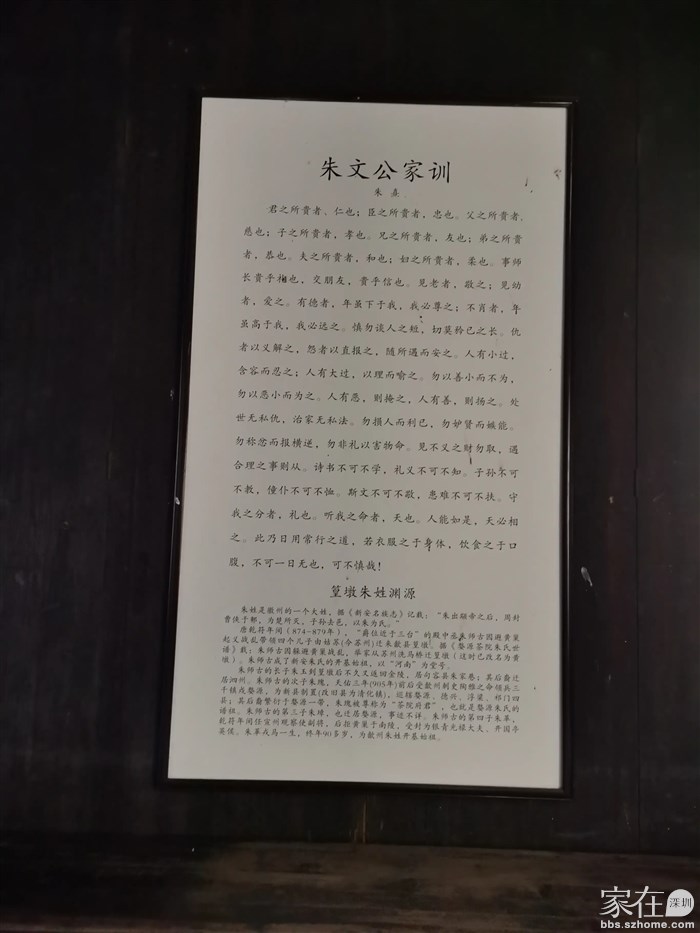 朱文公家训
朱熹
君之所贵者、仁也；臣之所贵者，忠也。父之所贵者，
慈也；子之所贵者，孝也。兄之所贵者，友也；弟之所贵
者，恭也。夫之所贵者，和也；妇之所贵者，柔也。事师
长贵乎礼也，交朋友，贵乎信也。见老者，敬之；见幼
者，爱之。有德者，年虽下于我，我必尊之；不肖者，年
虽高于我，我必远之。慎勿谈人之短，切莫矜已之长。仇
者以义解之，怨者以直报之，随所遇而安之。人有小过，
含容而忍之；人有大过，以理而喻之。勿以善小而不为，
勿以恶小而为之。人有恶，则掩之，人有善，则扬之。处
世无私仇，治家无私法。勿损人而利已，勿妒贤而嫉能。
勿称忿而报横逆，勿非礼以害物命。见不义之财勿取，遇
合理之事则从。诗书不可不学，礼义不可不知。子孙不可
不教，僮仆不可不恤。斯文不可不敬，患难不可不扶。守
我之分者，礼也。听我之命者，天也。人能如是，天必相
之。此乃日用常行之道，若衣服之于身体，饮食之于口
腹，不可一日无也，可不慎哉！
篁墩朱姓渊源
朱姓是徽州的一个大姓，据《新安名族志》记载：“朱出颛帝之后，周封
曹侠于邾，为楚所灭，子孙去邑，以朱为氏。”
唐乾符年间（874-879年），“爵位近于三台”的殿中丞朱师古因避黄巢
起义战乱带领四个儿子由姑苏(今苏州)迁来歙县篁墩。据《婺源茶院朱氏世
谱》载：朱师古因躲避黄巢战乱，举家从苏州洗马桥迁篁墩（这时已改名为黄
墩）。朱师古成了新安朱氏的开基始祖，以“河南”为堂号。
朱师古的长子朱玉到篁墩后不久又返回金陵，居句容县朱家巷；其后裔迁
居泗州。朱师古的次子朱瑰，天佑三年(905年)前后受歙州刺史陶雅之命领兵三
千镇戍婺源，为新县制置(改旧县为清化镇)，巡辖婺源、德兴、浮梁、祁门四
县；其后裔繁衍于婺源一带，朱瑰被尊称为“茶院府君”，也就是婺源朱氏的
谱祖。朱师古的第三子朱璋，也迁居婺源，事迹不详。朱师古的第四子朱革，
乾符年间任宣州观察使副将，后拒黄巢于南陵，受封为银青光禄大夫、开国亭
英侯。朱革戎马一生，终年90多岁，为歙州朱姓开基始祖。
家在深圳
bbs.szhome.com